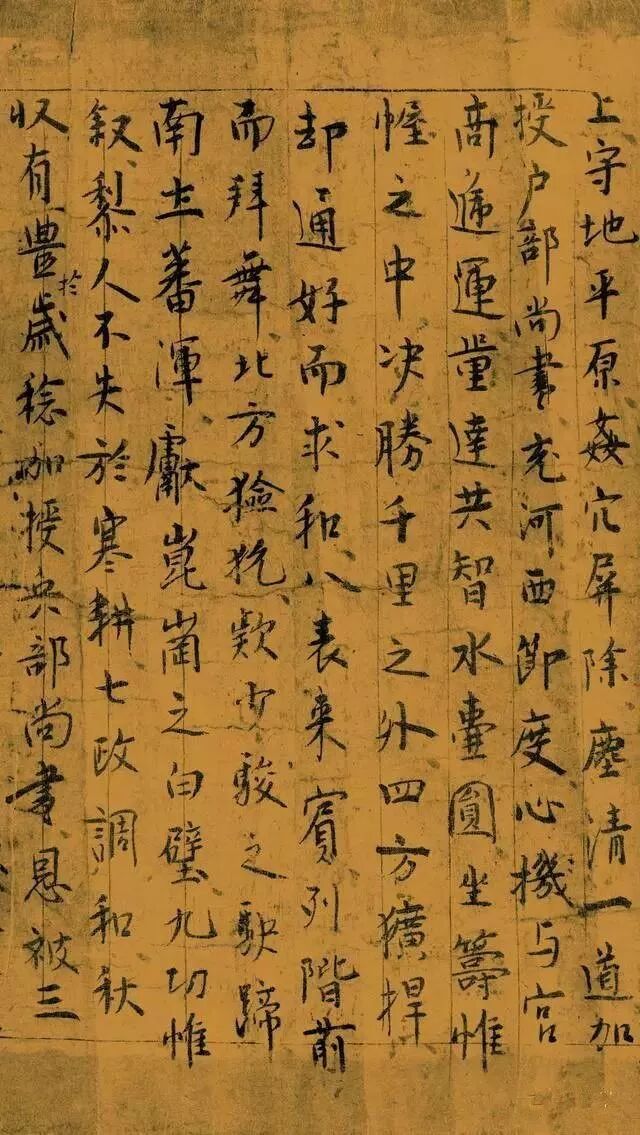 上守地平原姦穴屏除塵清一道加
授户部尚書充河西節度心機与宫
商遞運量達共智水壺圓坐籌帷
幄之中决勝千里之外四方獷捍
却通好而求和八表来賓列階前
而拜舞北方獫犹欵少駿之駃蹄
南土蕃渾獻崑崗之白璧九功惟
叙黎人不失於寒耕七政調和秋
収有豊於歳稔加授兵部尚書恩被三